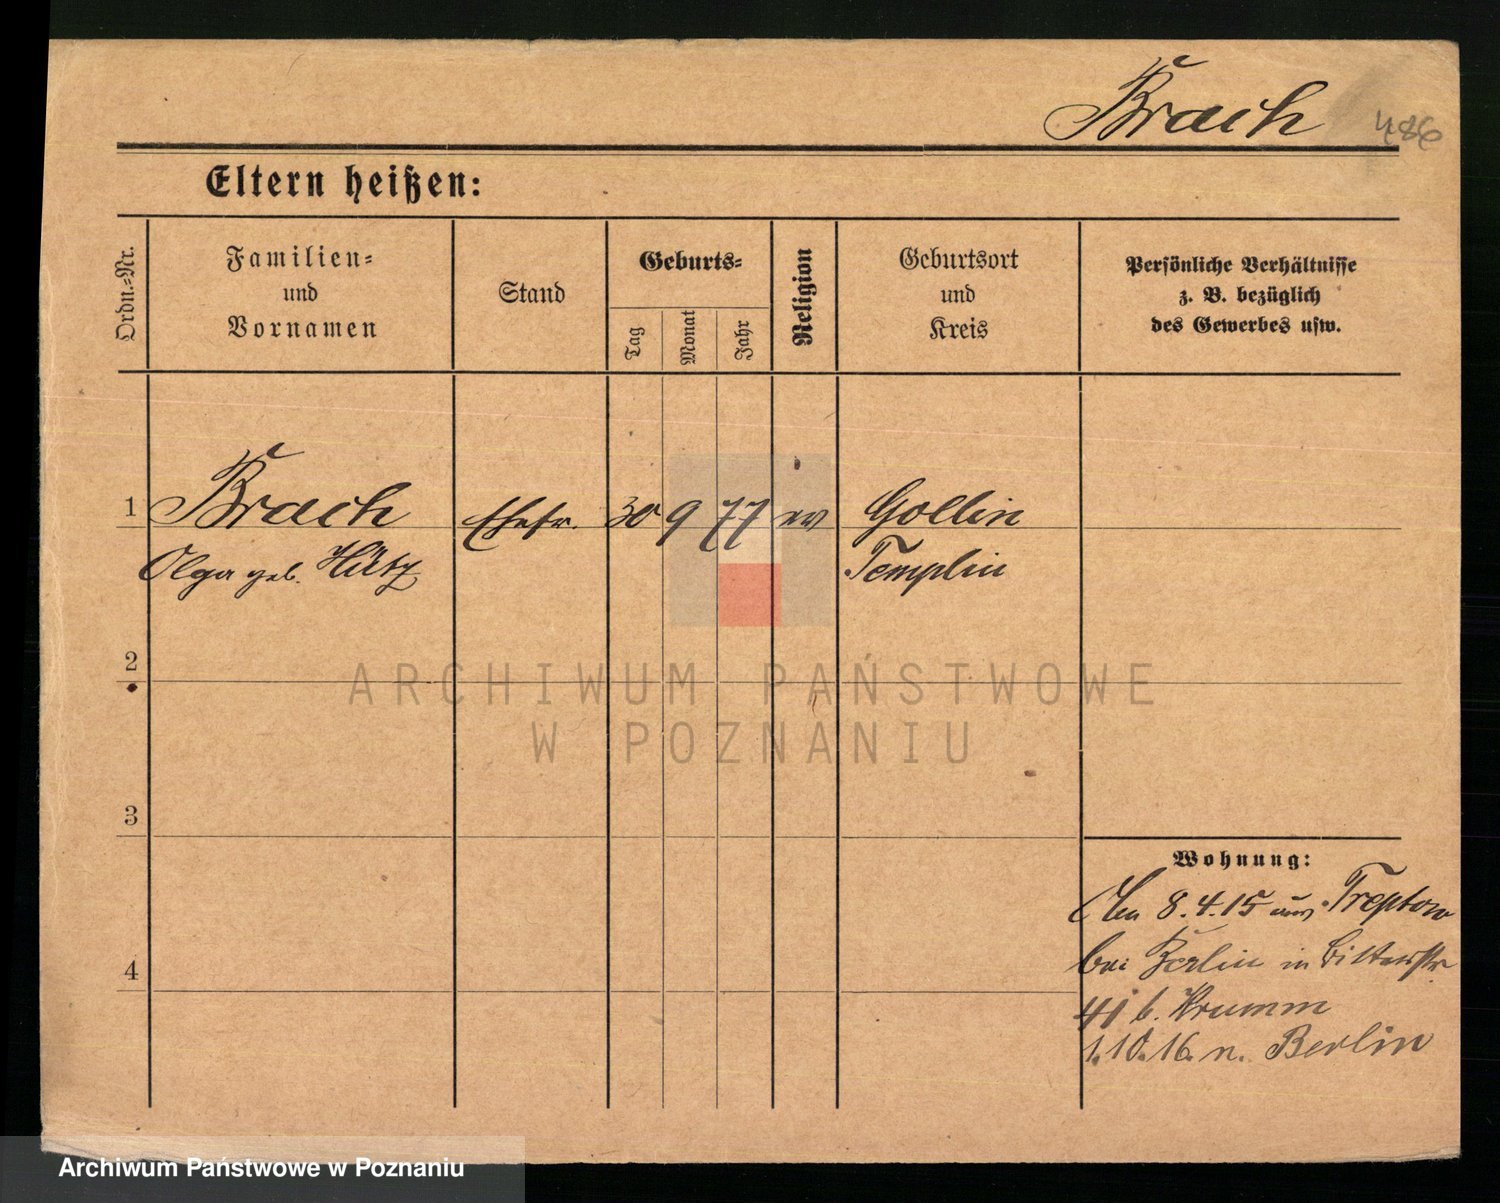 Brach
486
Eltern heißen:
Ordn.-Nr.
Familien-
und
Vornamen
Stand
Geburts-
Tag
Monat
Jahr
Religion
Geburtsort
und
Kreis
Persönliche Verhältnisse
z. B. bezüglich
des Gewerbes usw.
1 Brach Ehefr. 30 9 77 ev Gollin
Olga geb. Templin
2
3
4
Wohnung:
8.4.15 aus Treptow
bei Berlin in
41 b. Krumm
1.10.16. n. Berlin
ARCHIWUM PAŃSTWOWE
W POZNANIU
Archiwum Państwowe w Poznaniu